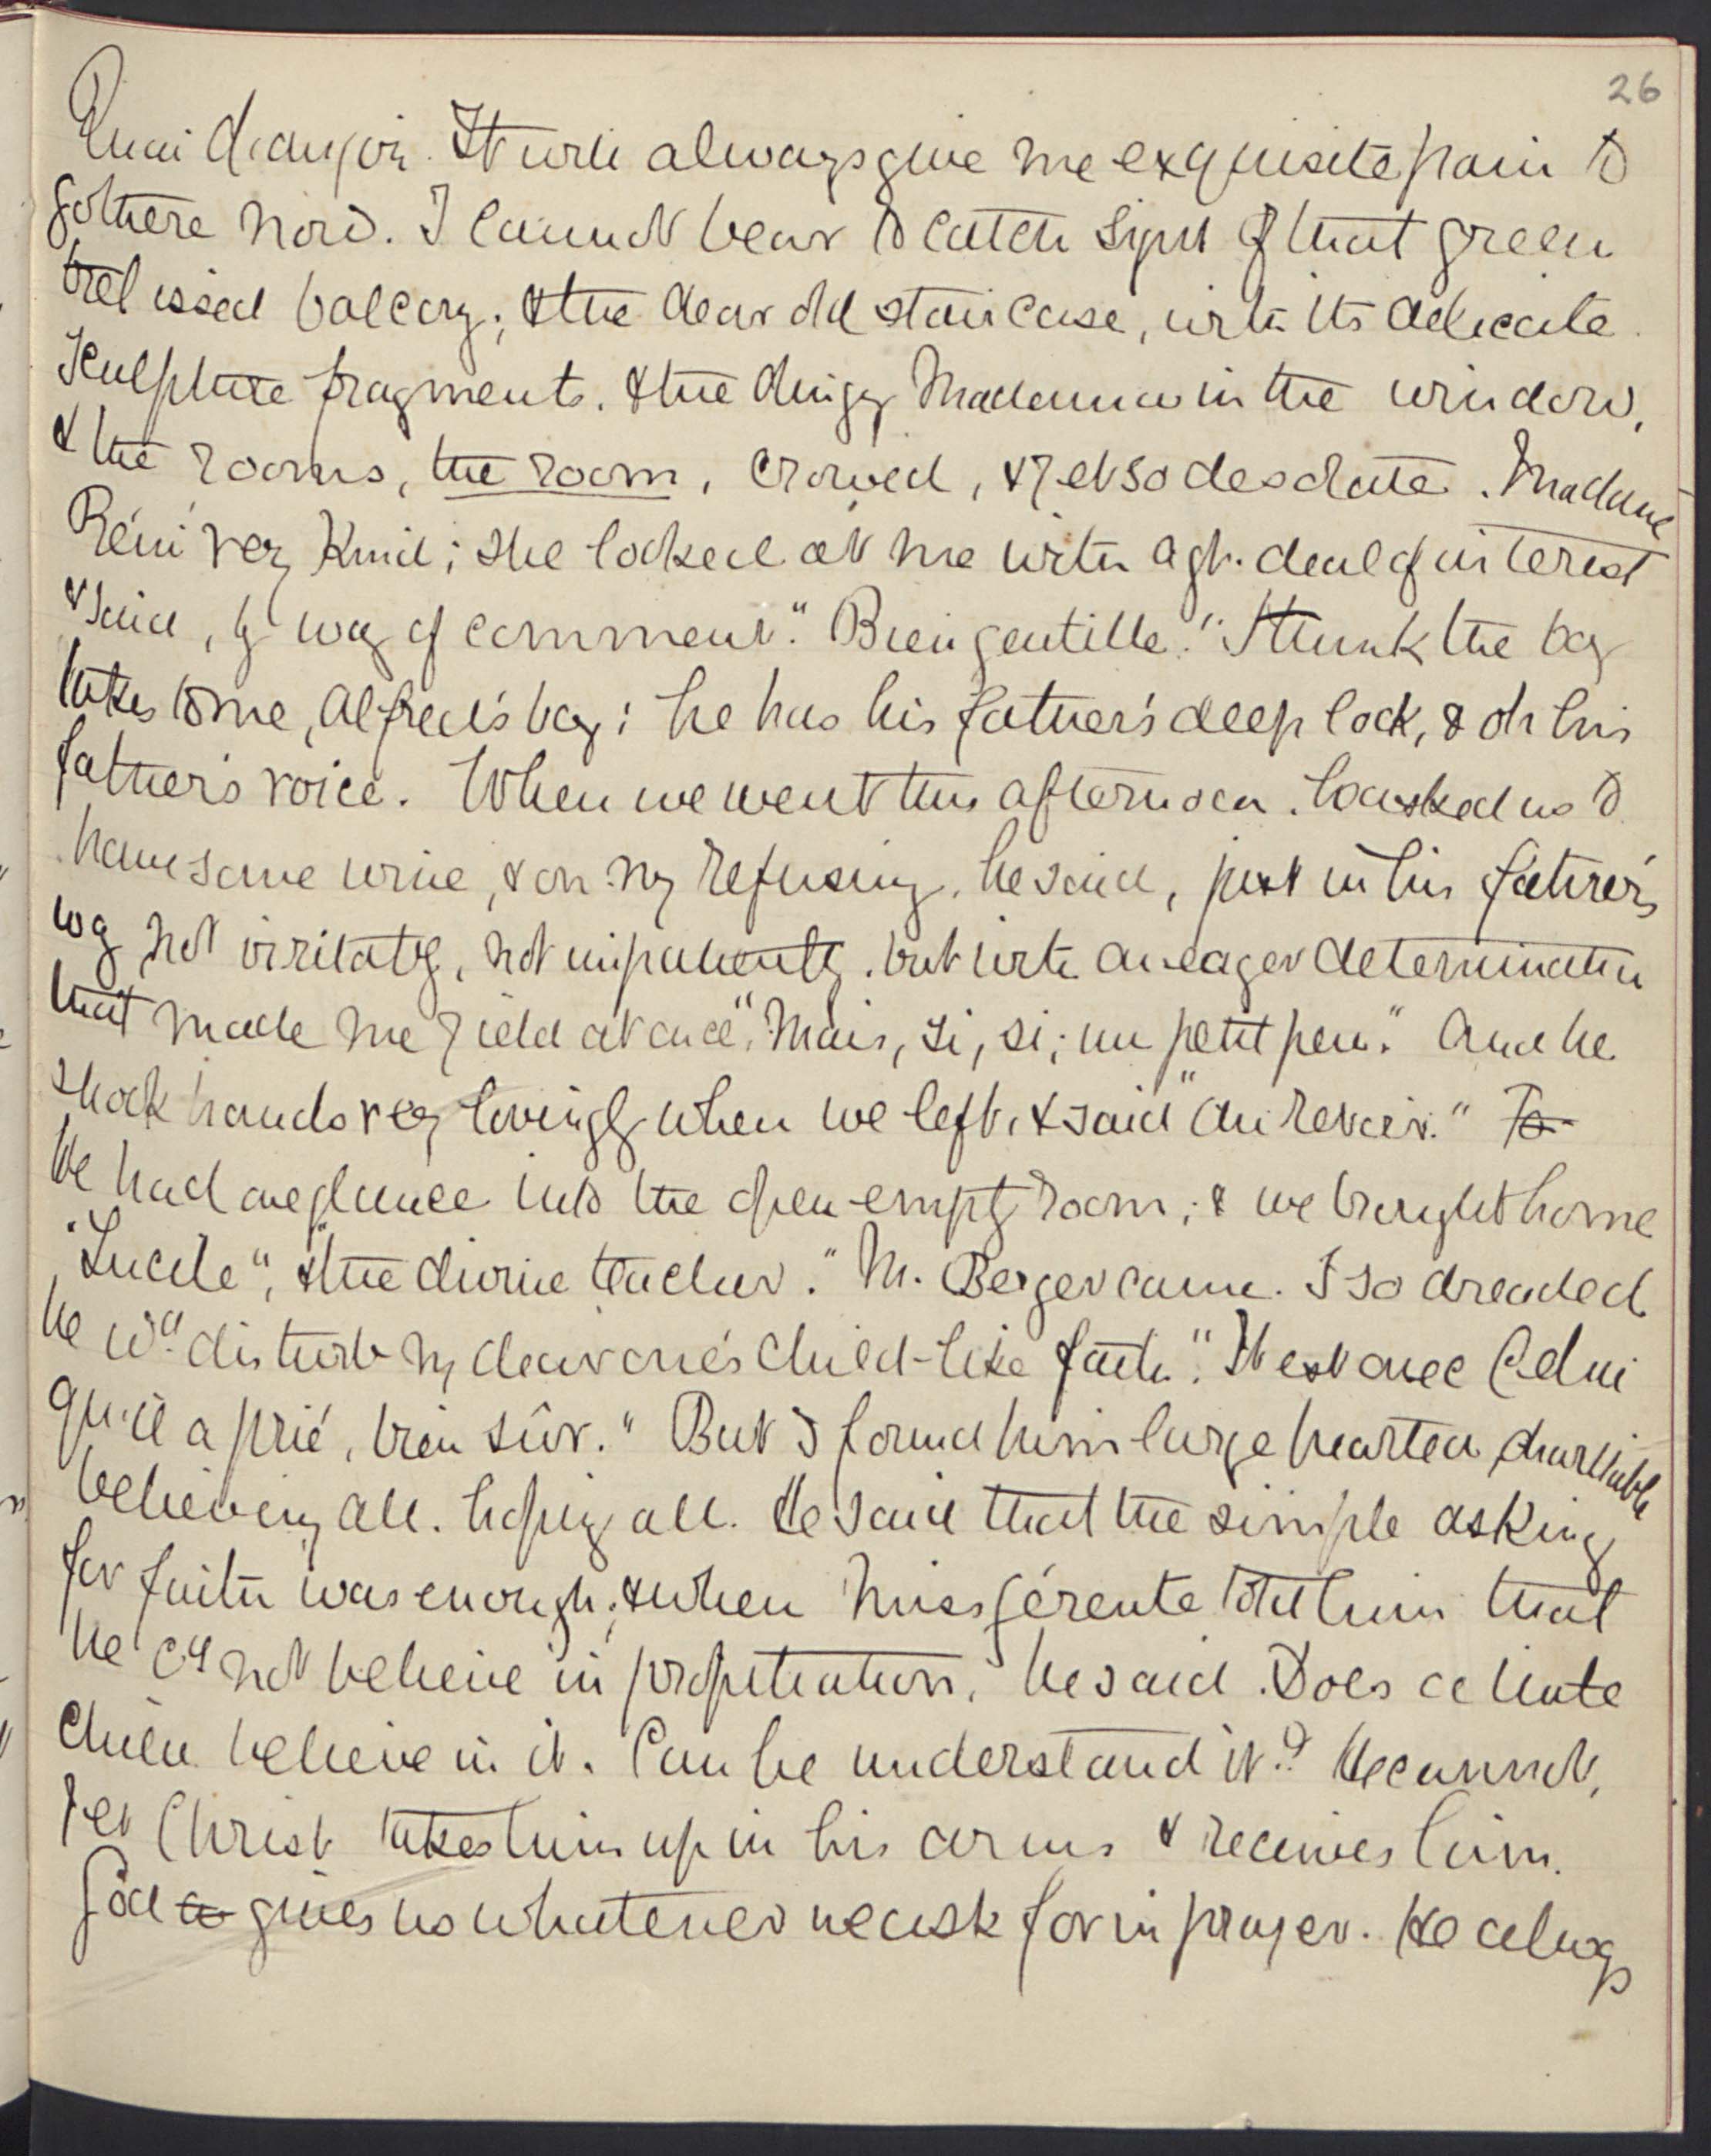 26
Quai d'anjou. It will always give me exquisite pain to
go there now. I cannot bear to catch sight of that green
trelissed balcony; & the dear old staircase, with its delicate
sculpture fragments. & the dingy Madonna in the window,
& the rooms, the room, crowed, & yet so desolate. Madame
Réni very kind; she looked at me with a gt. deal of interest
& said, by way of comment. "Bien gentille." I think the boy
takes to me, Alfred's boy; he has his father's deep look, & oh his
father's voice. When we went this afternoon. Lo asked us to
have some wine, & on my refusing, he said, just in his father's
way not irritably, not impatiently, but with an eager determination
that made me yield at once, "Mais, si, si; un petit peu." And he
shook hands very lovingly when we left, & said "Au Revoir." To
We had one glance into the open empty room; & we brought home
"Lucile", & "the divine teacher." M. Berger came. I so dreaded
he wd. disturb my dear one's child-like faith. "Il est avec Celui
qu'il a prié, bien sûr." But I found him large hearted charitable
believing all. hoping all. He said that the simple asking
for faith was enough; & when Miss férente told him that
he cd not believe in propitiation, he said. Does a little
child believe in it. Can he understand it? He cannot,
yet Christ takes him up in his arms & receives him.
God to gives us whatever we ask for in prayer. He always